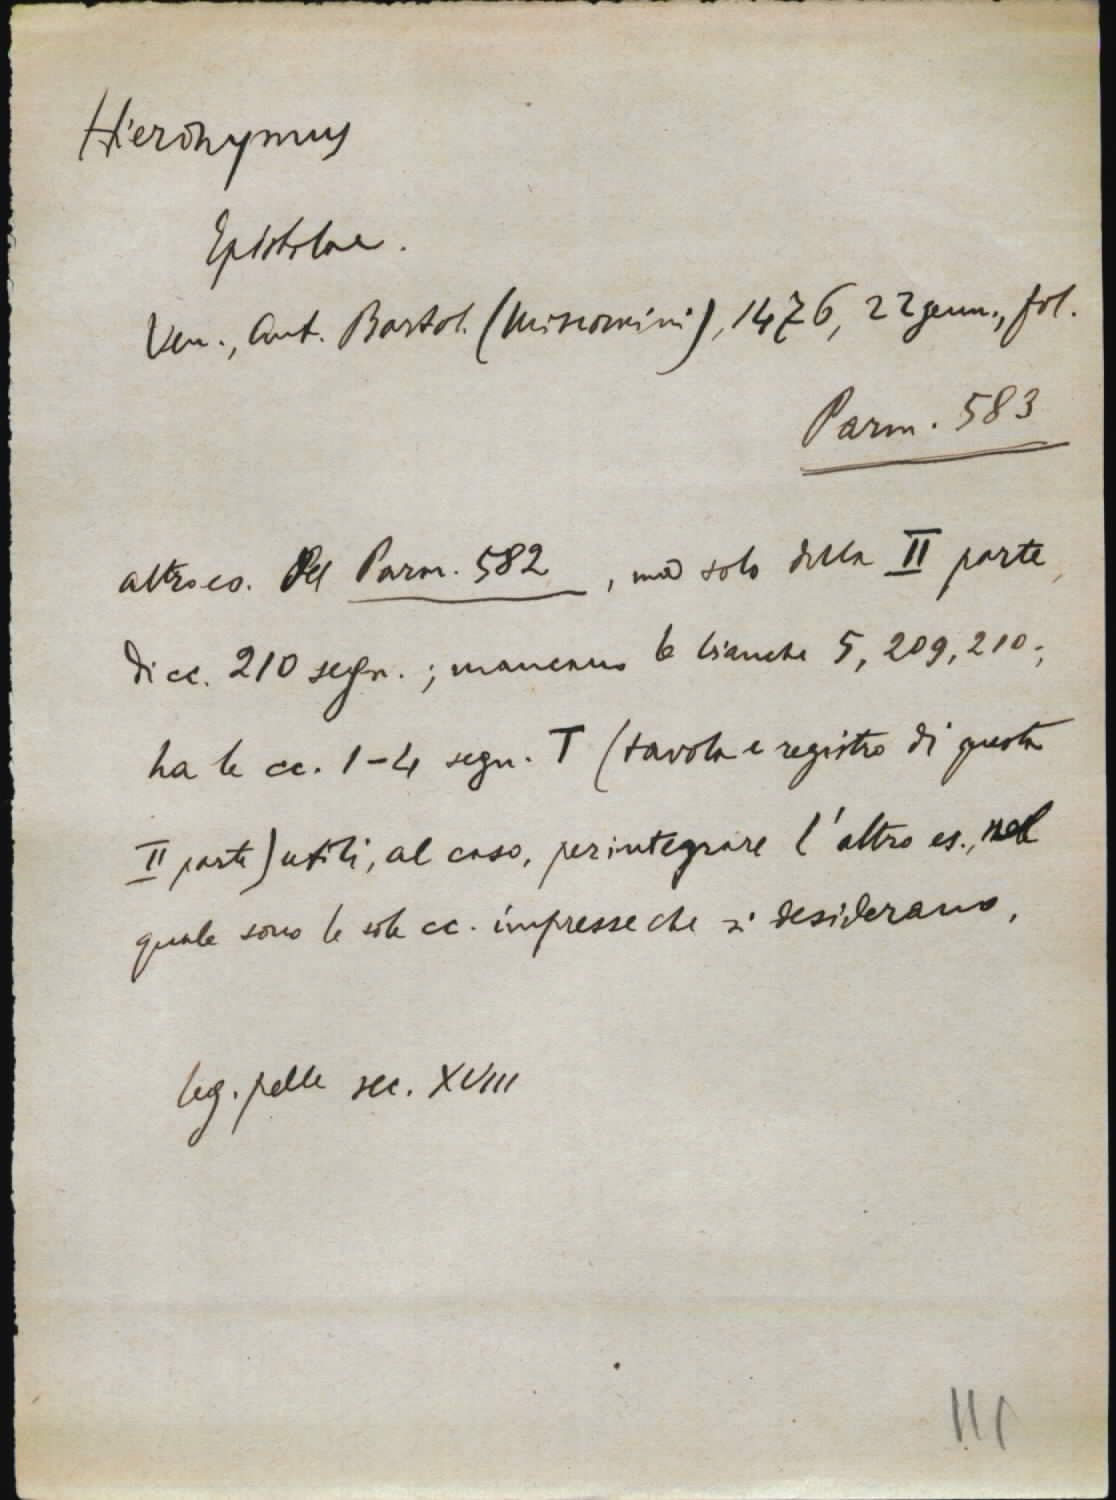 Hieronymus
Epistolae.
Ven., Ant. Bartol. (Miscomini), 1476, 22 genn., fol.
Parm. 583
altro es. del Parm. 582, ma solo della II parte,
di cc. 210 segn.; mancano le bianche 5, 209, 210;
ha le cc. 1-4 segn. T (tavola e registro di questa
II parte) utili, al caso, per integrare l'altro es., nel
quale sono le sole cc. impresse che si desiderano.
leg. pelle sec. XVIII